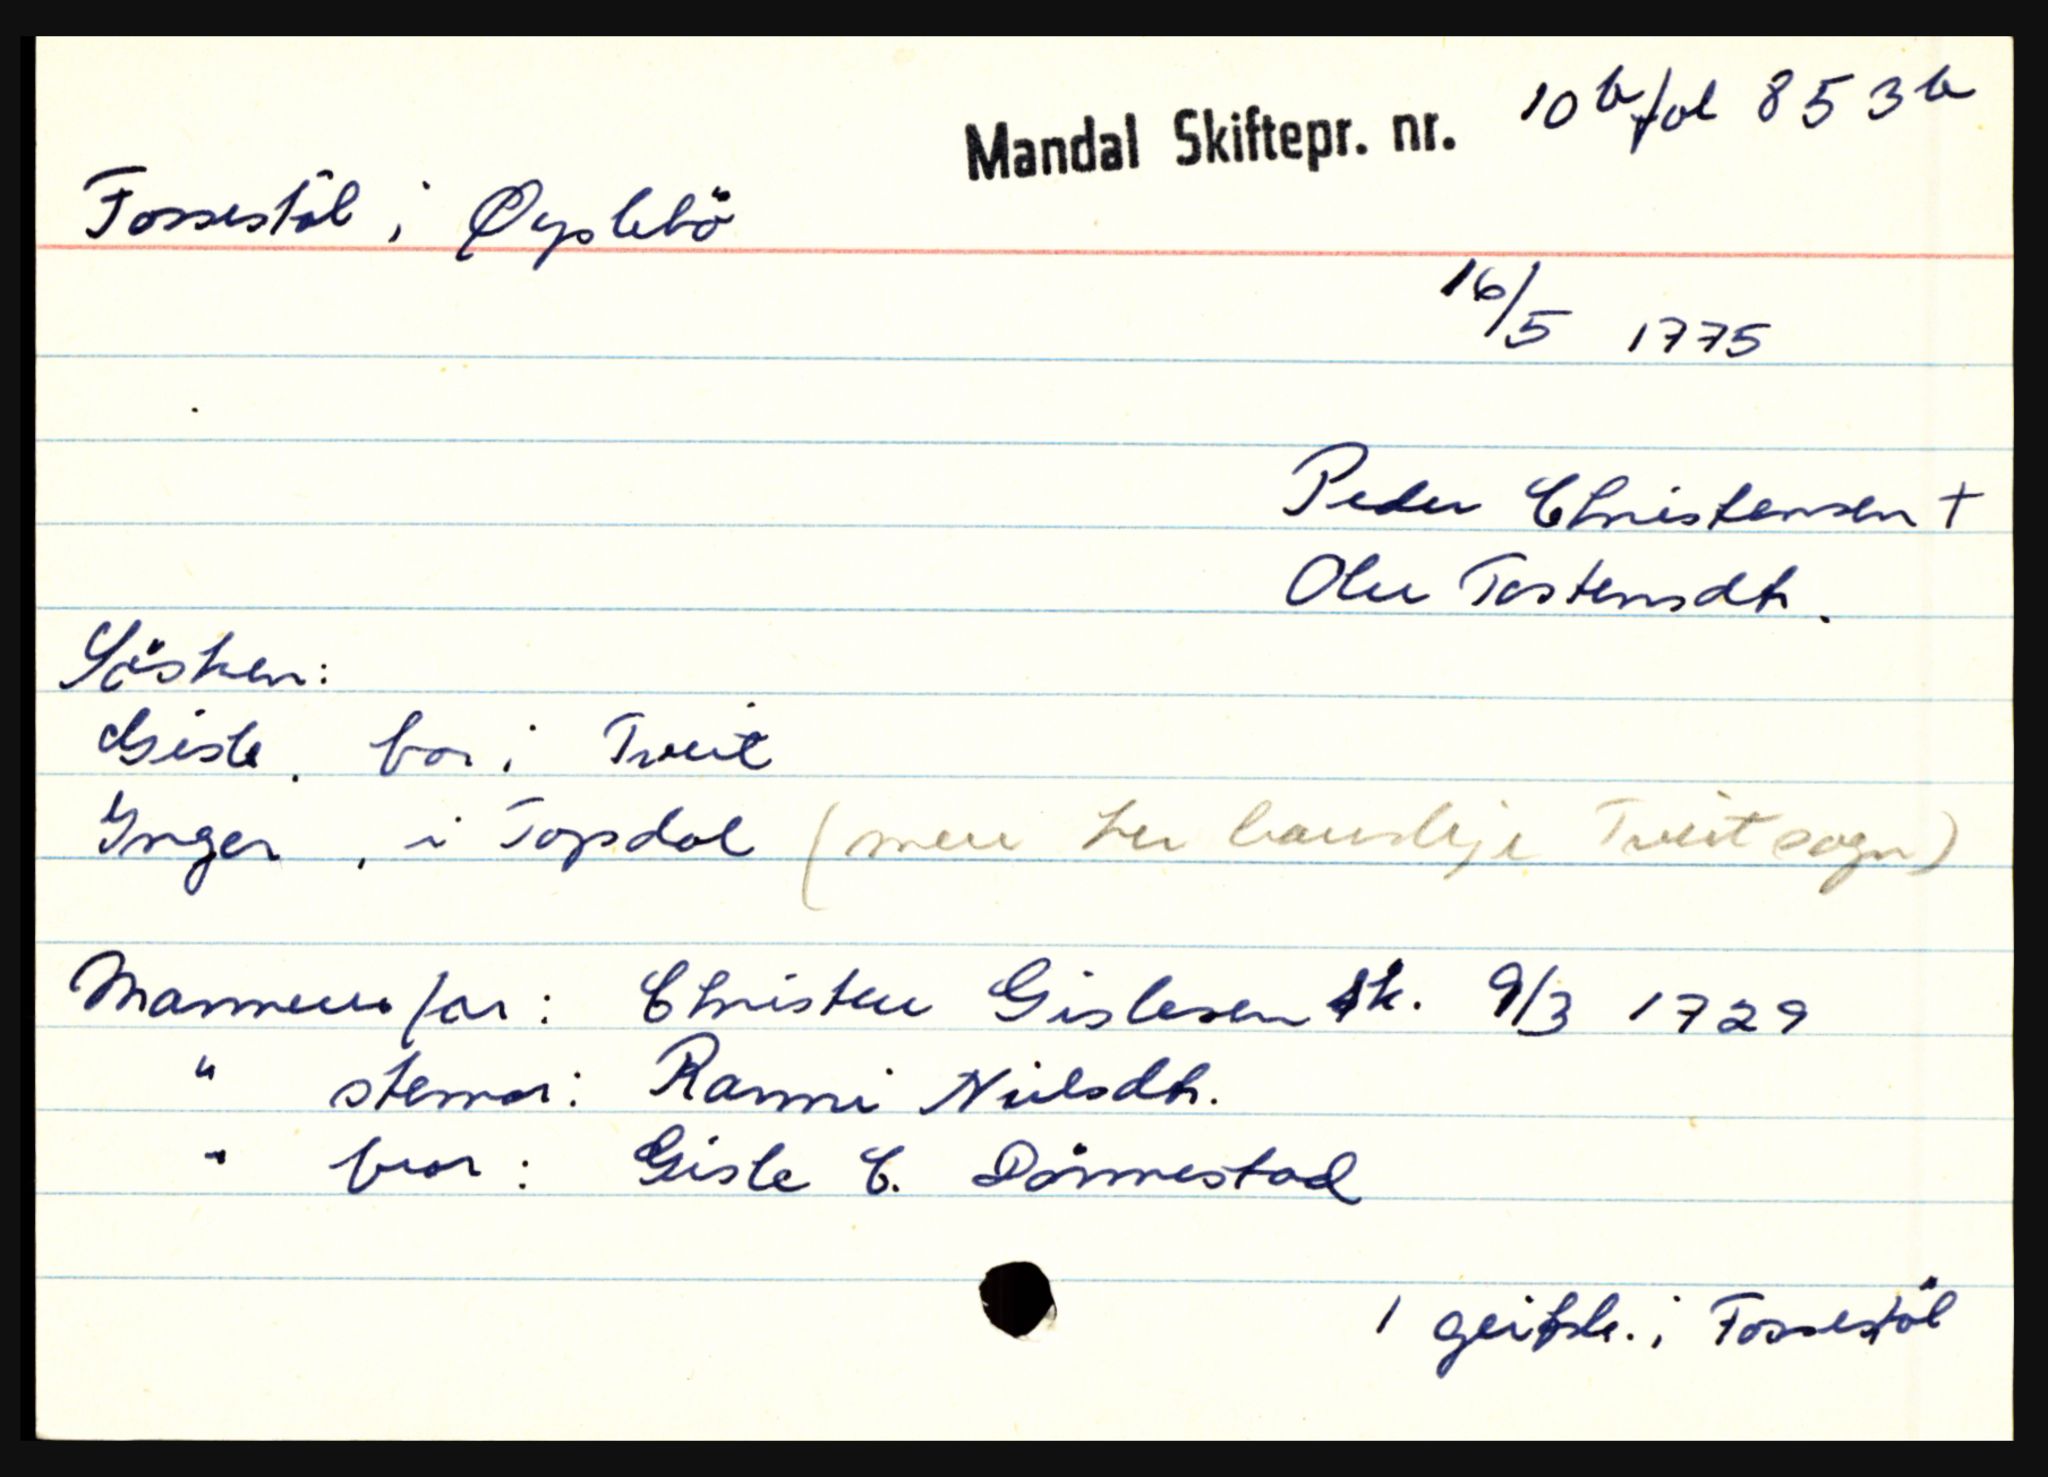 Mandal Skiftepr. nr. 10b fol 853b
Fossestöl i Øyslebö
16/5 1775
Peder Christensen +
Olu Tostensdtr.
Sösken:
Gisle. bor i Tveit
Inger , i Topdal ( Tveit sogn)
Mannens far: Christen Gislesen sk. 9/3 1729
" stemor: Ranni Nielsdtr.
" bror: Gisle C. Dönnestad
1 i Fossestöl